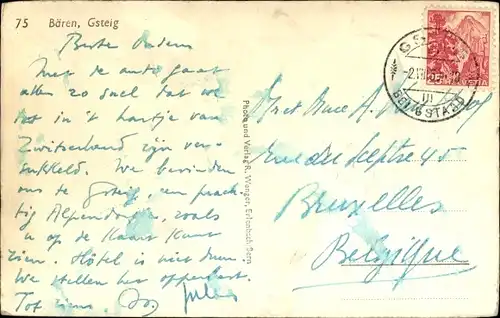 75 Bären, Gsteig
Beste Ouders
Met de auto gaat
alles zoo snel dat we
tot in 't hartje van
Zwitserland zijn ver-
sukkeld. We bevinden
ons te Gsteig, een prach-
tig Alpendorp, zoals
u op de Kaart kunt
zien. Hôtel is niet duur.
We stellen het opperbest.
Tot ziens.
Jules
Photo und Verlag R. Wenger, Erlenbach, Bern
Mr et Mme A.
rue du Sceptre 45
Bruxelles
Belgique